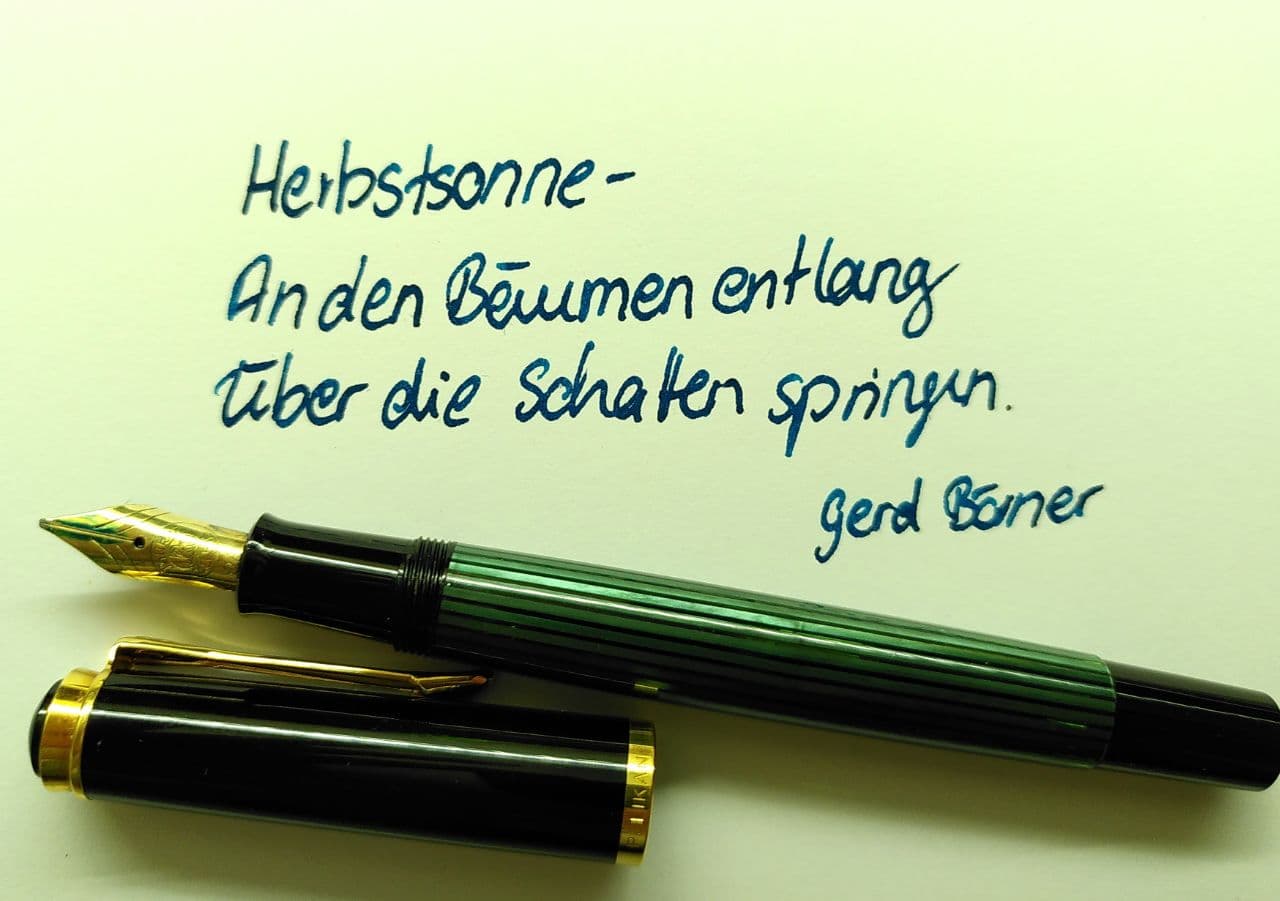 Herbstsonne-
An den Bäumen entlang
Über die Schatten springen.
Gerd Börner
PELIKAN